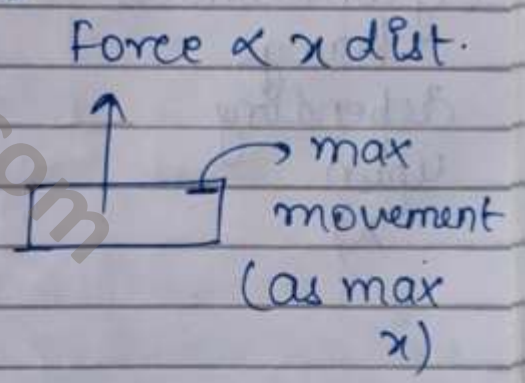 Force ∝ x dist.
max
movement
(as max
x)
com